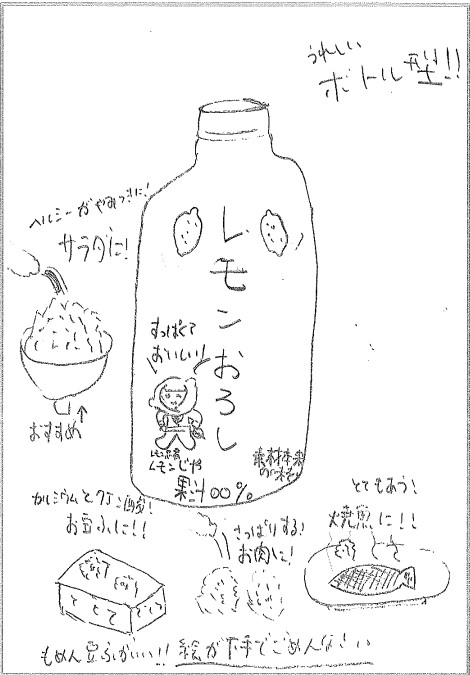 うれしい
ボトル型!!
ヘルシーがやみつきに!
サラダに!
おすすめ
レモンおろし
すっぱくて
おいしい!
レモンじや
素材本来
の味を!
果汁00%
お豆ふに!!
さっぱりする!
お肉に!
とてもあう!
焼魚に!!
もめん豆ふがいい!! 絵が下手でごめんなさい